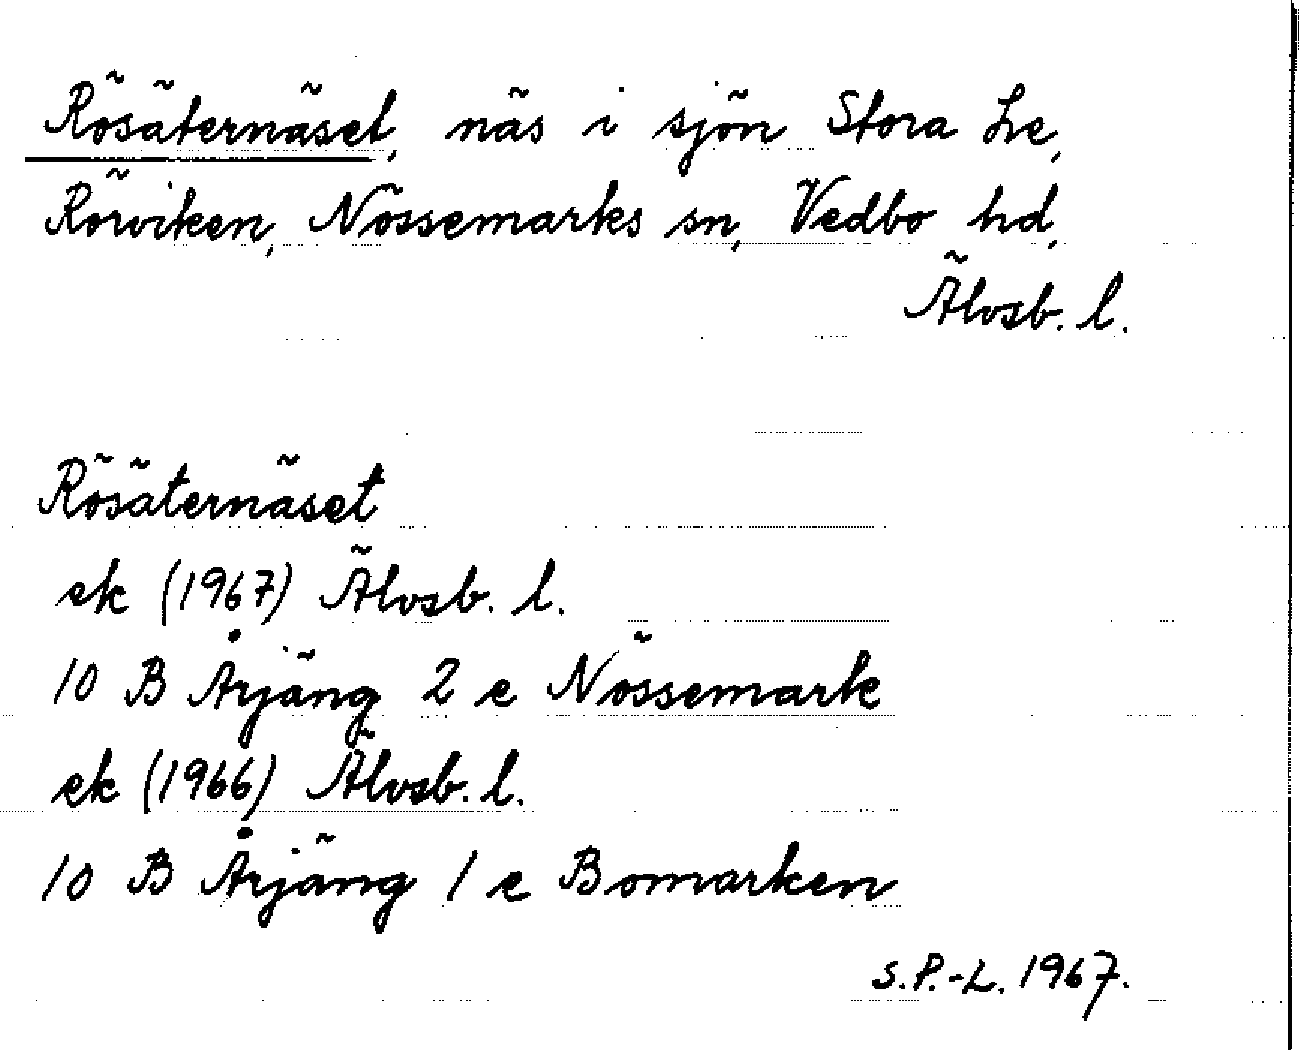 Rösäternäset, näs i sjön Stora Le,
Rörviken, Nössemarks sn, Vedbo hd,
Älvsb. l.
Rösäternäset
ek (1967) Älvsb. l.
10 B Årjäng 2 e Nössemark
ek (1966) Älvsb. l.
10 B Årjäng 1 e Bomarken
S.P.-L. 1967.